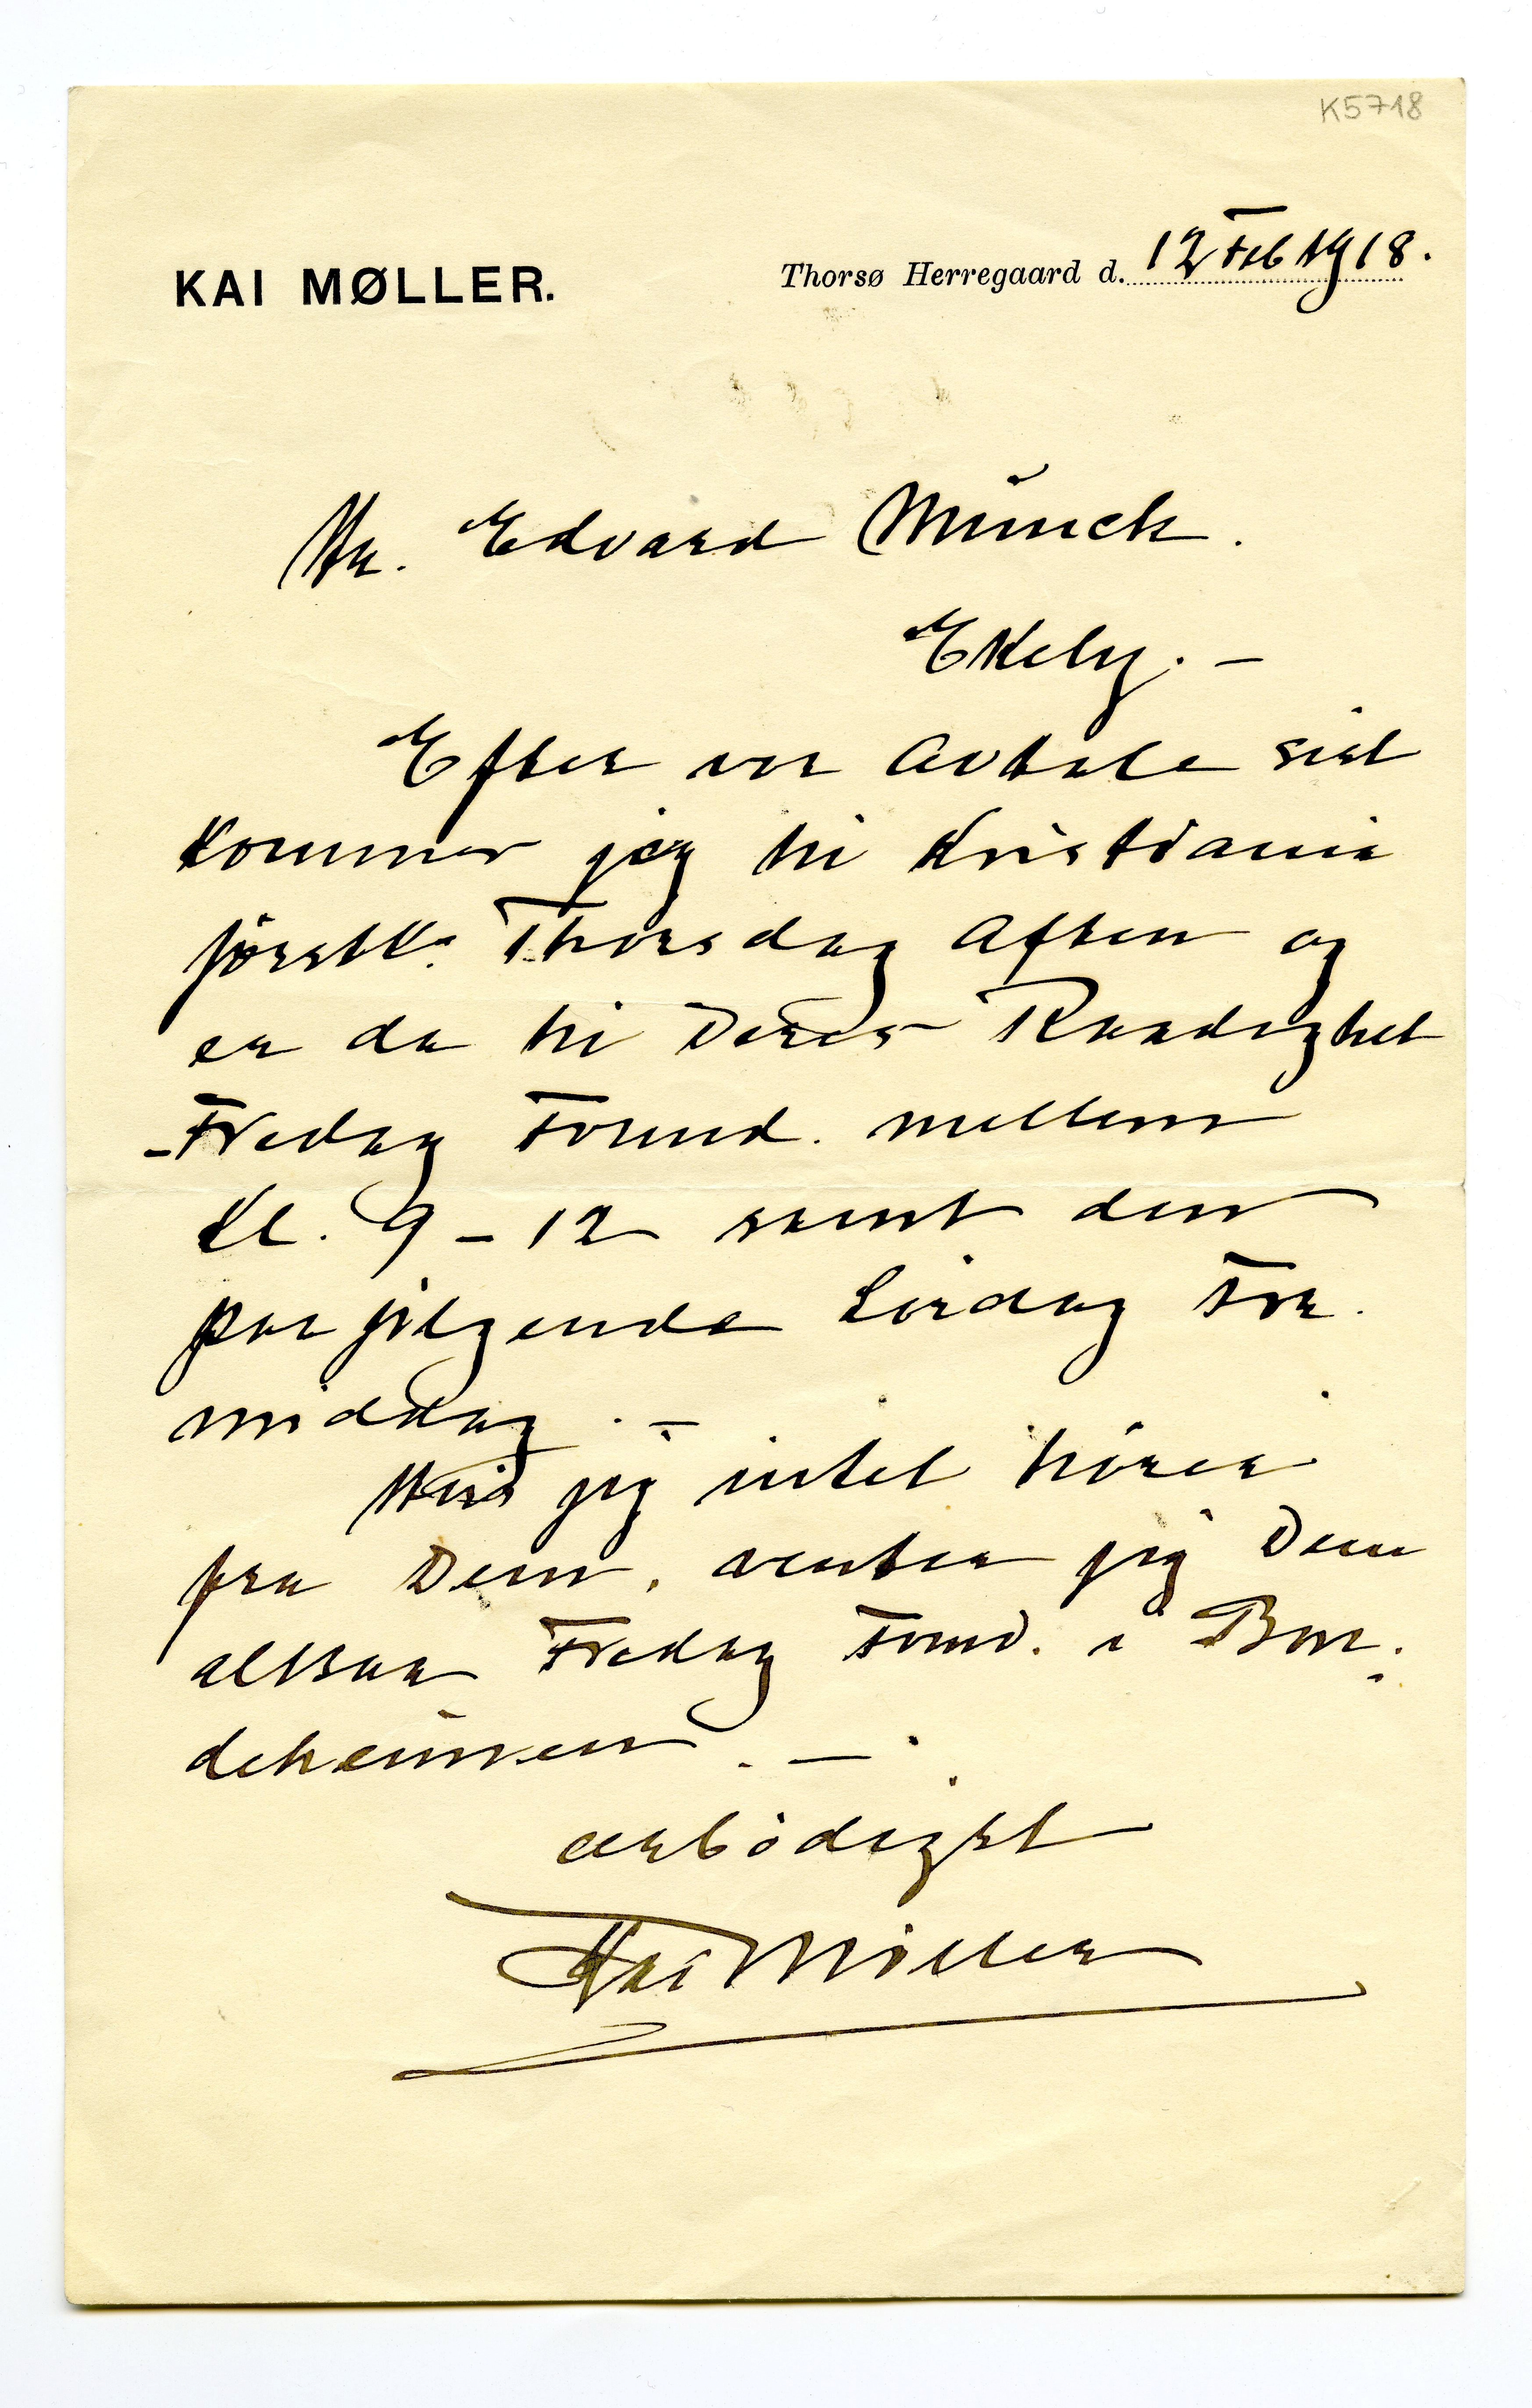 K5718
KAI MØLLER.
Thorsø Herregaard d. 12 Feb 1918.
Hr. Edvard Münck.
Ekely. –
Efter vor Avtale sist
kommer jeg til Kristiania
førstk. Thorsdag Aften og
er da til Deres Raadighet
Fredag Formd. mellem
Kl. 9 – 12 samt den
paafølgende Lørdag For-
middag. –
Hvis jeg intet hører
fra Dem, venter jeg Dem
altsaa Fredag Formd. i Bon-
deheimen. –
ærbødigst
Kai Møller